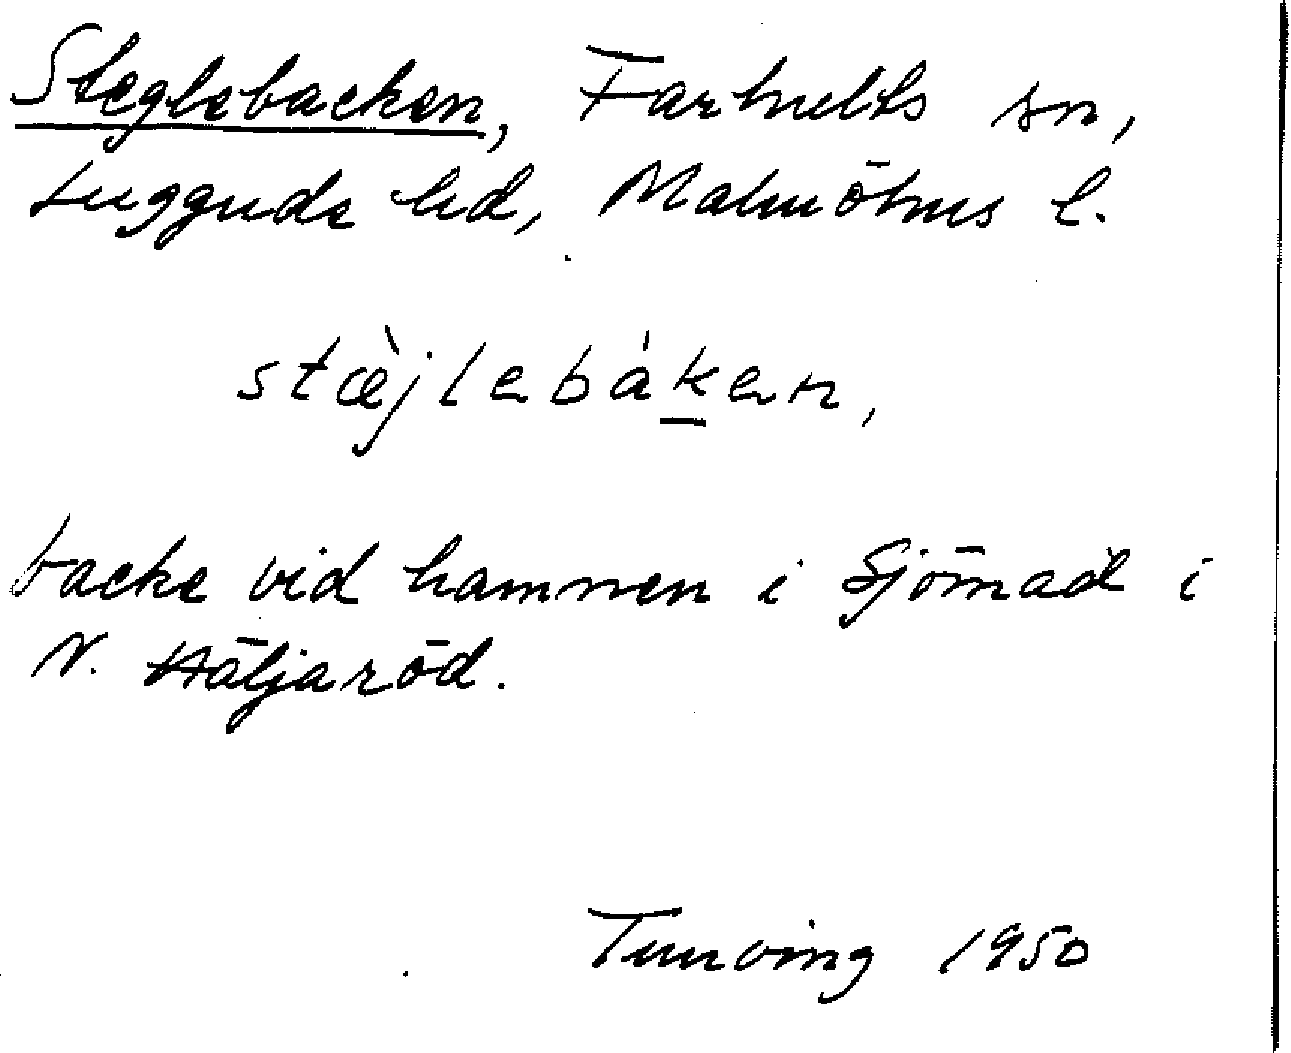 Steglebacken, Farhults sn,
Luggude hd, Malmöhus l.
stæ̀jlebákен,
backe vid hamnen i Sjömad i
N. Häljaröd.
Tunving 1950